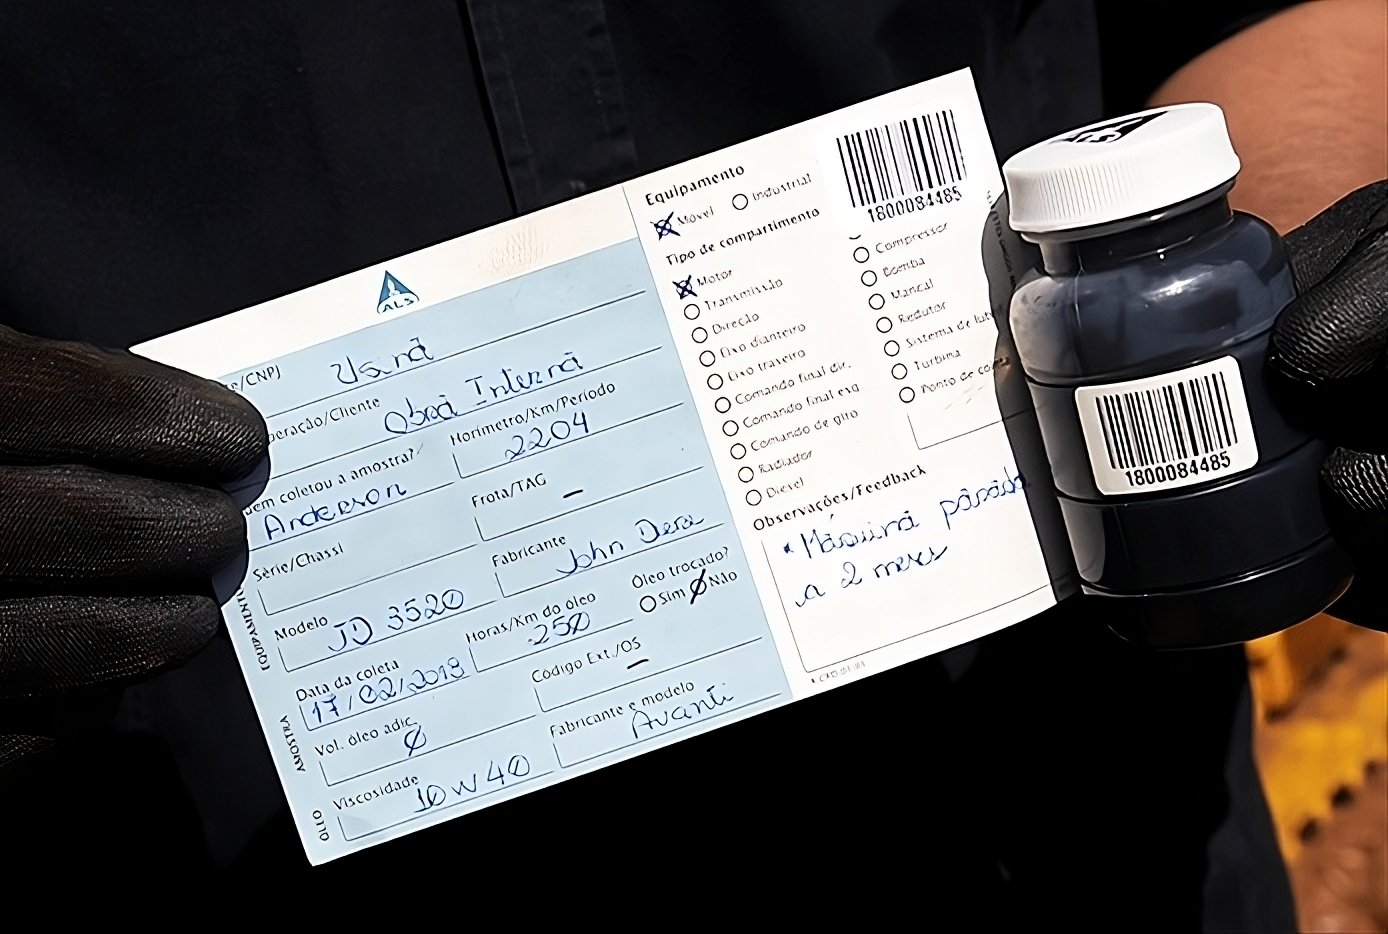 ALS
te/CNPJ Usina
peração/Cliente Obra Interna
uem coletou a amostra? Anderson
Horímetro/Km/Período 2204
Série/Chassi
Frota/TAG –
Modelo JD 3520
Fabricante John Dere
Data da coleta 17/02/2018
Horas/Km do óleo 250
Óleo trocado?
Sim Não
Vol. óleo adic. Ø
Código Ext./OS –
Viscosidade 10W40
Fabricante e modelo Avanti
EQUIPAMENTO
AMOSTRA
ÓLEO
Equipamento
Móvel Industrial
Tipo de compartimento
Motor
Transmissão
Direção
Eixo dianteiro
Eixo traseiro
Comando final dir.
Comando final esq
Comando de giro
Radiador
Diesel
1800084485
Compressor
Bomba
Mancal
Redutor
Sistema de
Turbina
Ponto de
Observações/Feedback
* Máquina parada
a 2 meses
1800084485